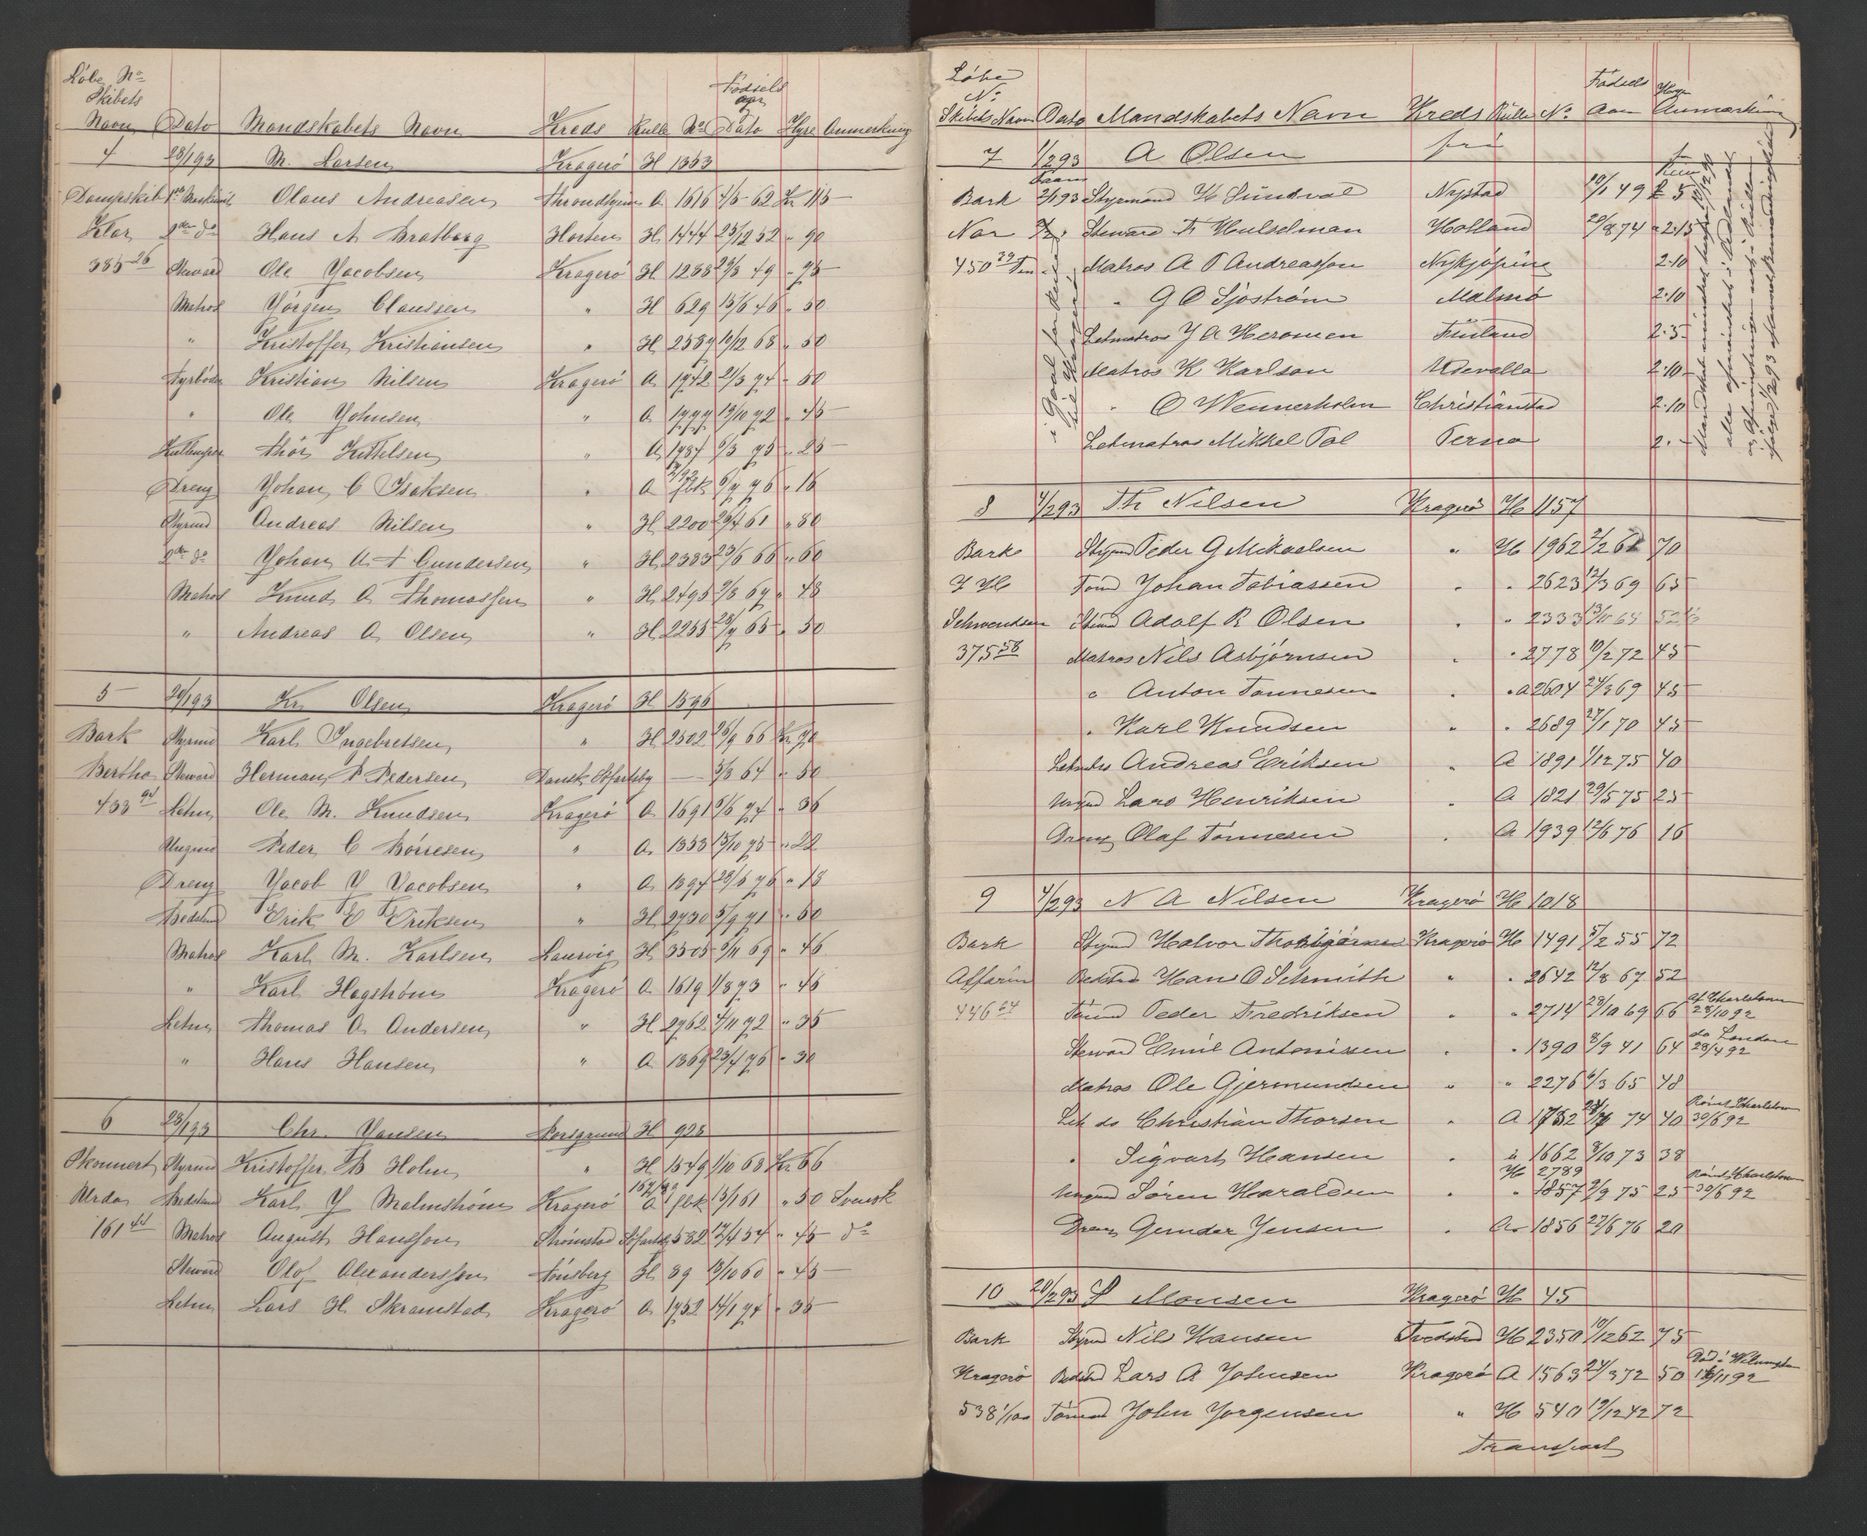 Løbe No
Skibets
Navn Dato Mandskabets Navn Kreds Rulle No Fødsels aar Dato Hyre Anmerkning
4 28/1 93 M. Larsen Kragerø H 1363
Dampskib 1ste Olaus Andreasen Throndhjem A 1616 4/5 62 Kr 115
Klar 2den do Hans A Bratberg Horten H 1444 25/12 52 " 90
385 26 Steward Ole Jacobsen Kragerø H 1288 49 " 75
Matros Jørgen Claussen " H 629 15/6 46 " 50
" Kristoffer Kristiansen " H 2589 10/2 68 " 50
Fyrbøder Kristian Nilsen Kragerø A 1742 21/3 74 " 50
" Ole Johnsen " A 1777 13/10 72 " 45
Kullemper Thor Kittelsen " A 1784 6/3 75 " 25
Dreng Johan C Isaksen " A fbk 6/7 76 " 16
Styrmd Andreas Nilsen " H 2200 29/4 61 " 80
2den do Johan U. A Gundersen " H 2383 23/5 66 " 60
Matros Knud A Thomassen " H 2495 67 " 48
" Andreas A Olsen " H 2255 28/7 65 " 50
5 29/1 93 Kr Olsen Kragerø H 1596
Bark Styrmd Karl Ingebretsen " H 2502 26/9 66 Kr 70
Bertha Steward Herman P Pedersen Dansk — 5/3 64 " 50
433 94 Letm Ole M. Knudsen Kragerø A 1691 74 " 36
Ungmd Peder C Børresen " A 1353 15/10 75 " 22
Dreng Jacob J Jacobsen " A 1894 28/6 76 " 18
Bedstmd Erik E Eriksen " H 2730 5/9 71 " 50
Matros Karl M. Karlsen Laurvig H 3505 5/11 69 " 46
" Karl Hagstrøm Kragerø A 1619 1/8 73 " 46
Letm Thomas A Andersen " H 2762 4/11 72 " 35
" Hans Hansen " A 1369 23/4 76 " 30
6 28/1 93 Chr. Jansen Porsgrund H 925
Skonnert Styrmd Kristoffer B Holm " H 1549 1/10 68 Kr 66
Urda Bedstmd Karl J Malmstrøm Kragerø A fbk 13/1 61 " 50 Svensk
161 44 Matros August Hansson Strømstad 582 12/4 54 " 45 do
Steward Olof Alexandersson Tønsberg H 89 /10 60 " 45
Letm Lars H. Skramstad Kragerø A 1752 14/1 74 " 35
Løbe
No
Skibets Navn Dato Mandskabets Navn Kreds Rulle No Fødsels aar Hyre Anmærkning
7 1/2 93 A Olsen fri
Bark 2/1 93 Styrmand H Sundval Nystad 10/1 49 £ 5
Nor Steward Fr Hulselman Holland 20/8 74 " 2.15
450 39 Matros A P Andreasson Nykjöping 2.10
" G O Sjöström Malmö 2.10
Letmatros J A Heroman Finland 2.5
Matros K Karlson Udevalla 2.10
" O Wennerholm Christianstad 2.10
Letmatros Mikkel Pal Perna 2. –
8 4/2 93 Th Nilsen Kragerø H 1157
Bark Styrmd Peder G Mikaelsen " H 1962 2/2 61 70
J H Tømd Johan Tobiassen " " 2623 12/3 69 65
Schwendsen Stumd Adolf R Olsen " " 2333 13/10 64 52
375 58 Matros Nils Asbjørnsen " " 2778 10/2 72 45
" Anton Tønnesen " " A 2604 24/3 69 45
" Karl Knudsen " " 2689 27/1 70 45
Letmtrs Andreas Eriksen " A 1891 1/12 75 40
Ungmd Lars Henriksen " A 1821 29/5 75 25
Dreng Olaf Tønnesen " A 1939 12/6 76 16
9 4/2 93 N A Nilsen Kragerø H 1018
Bark Styrmd Halvor Thorbjørnsen Kragerø H 1491 5/2 55 72
Alfarin Bedstmd Hans O Schmith " " 2642 12/8 67 52
446 24 Tømd Peder Fredriksen " " 2714 23/10 69 66 Af Charlston 28/10 92
Steward Emil Antonissen " " 1390 8/9 41 64 do London 28/4 92
Matros Ole Gjermundsen " " 2276 6/3 65 48
Let do Christian Thorsen " A 1782 74 40 Rømt Charlston 30/6 92
" Sigvart Hansen " " 1662 8/10 73 38
H 2789
Ungmd Søren Haraldsen " " 1857 2/9 75 25 Rømt Charlston 30/6 92
Dreng Gunder Jensen " A 1856 27/6 76 20
10 20/2 93 S Monsen Kragerø H 45
Bark Styrmd Nils Hansen Tvedstrd H 2350 10/12 62 75
Kragerø Bedstmd Lars A Johnsen Kragerø A 1563 24/3 72 50 Død i Wilmington 16/11 92
538 1/100 Tømd John Jørgensen " H 540 19/12 42 72
Transport